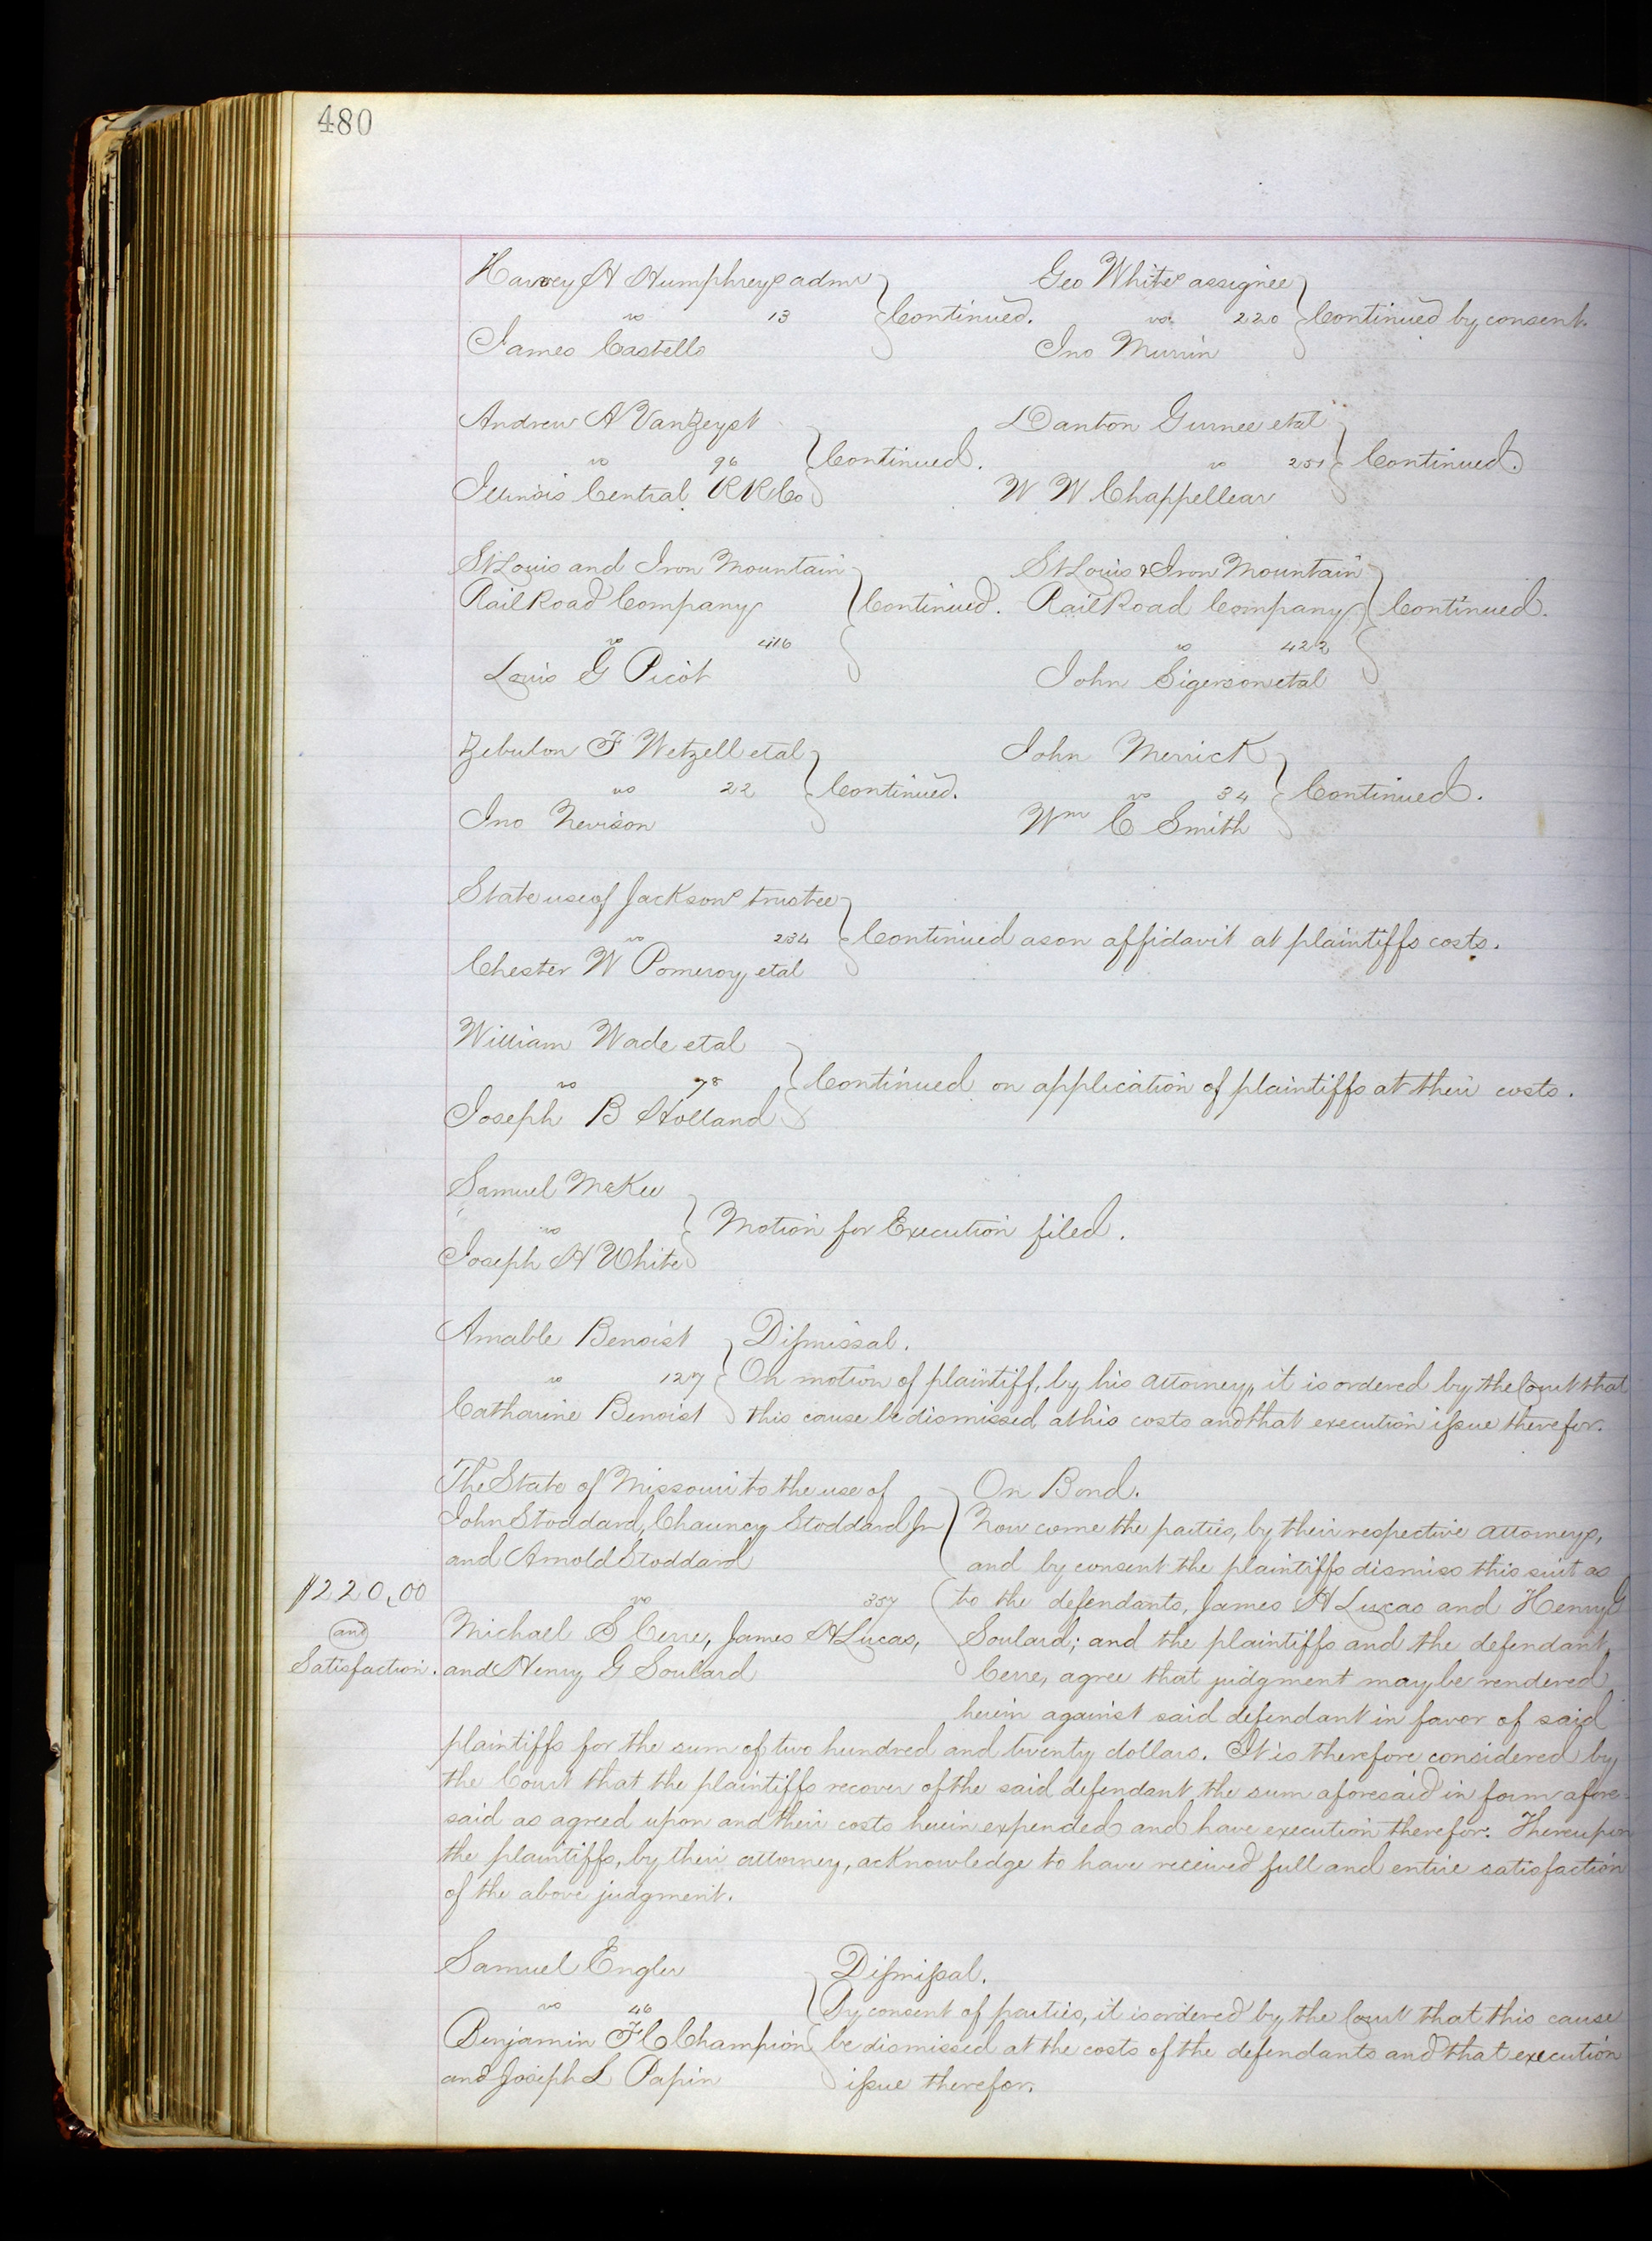 480
Harvey H Humphreys admr
vs 13
James Castello
Continued.
Geo Whites assignee
vs. 220
Jno Murrin
Continued by consent.
Andrew A VanZeyst
vs 96
Illinois Central RR Co
Continued.
Danton Gurnee etal
vs 251
W W Chappellear
Continued.
St Louis and Iron Mountain
Rail Road Company
vs 416
Louis G Picot
Continued.
St Louis & Iron Mountain
Rail Road Company
vs 422
John Sigerson etal
Continued.
Zebulon F Wetzell etal
vs 22
Jno Nevison
Continued.
John Merrick
vs 34
Wm C Smith
Continued.
State use of Jacksons trustee
vs 234
Chester W Pomeroy etal
Continued as on affidavit at plaintiffs costs.
William Wade etal
vs 78
Joseph B Holland
Continued on application of plaintiffs at their costs.
Samuel McKee
vs
Joseph H White
Motion for Execution filed.
Amable Benoist
vs 127
Catharine Benoist
Dismissal.
On motion of plaintiff, by his attorney, it is ordered by the Court that
this cause be dismissed at his costs and that execution issue therefor.
The State of Missouri to the use of
John Stoddard, Chauncy Stoddard Jr
and Arnold Stoddard
vs 357
Michael S Cerre, James H Lucas,
and Henry G Soulard
$220,00
and
Satisfaction.
On Bond.
Now come the parties, by their respective attorneys,
and by consent the plaintiffs dismiss this suit as
to the defendants, James H Lucas and Henry G
Soulard; and the plaintiffs and the defendant,
Cerre, agree that judgment may be rendered
herein against said defendant in favor of said
plaintiffs for the sum of two hundred and twenty dollars. It is therefore considered by
the Court that the plaintiffs recover of the said defendant the sum aforesaid in form afore-
said as agreed upon and their costs herein expended and have execution therefor. Thereupon
the plaintiffs, by their attorney, acknowledge to have received full and entire satisfaction
of the above judgment.
Samuel Engler
vs 46
Benjamin F C Champion
and Joseph L Papin
Dismissal.
By consent of parties, it is ordered by the Court that this cause
be dismissed at the costs of the defendants and that execution
issue therefor.